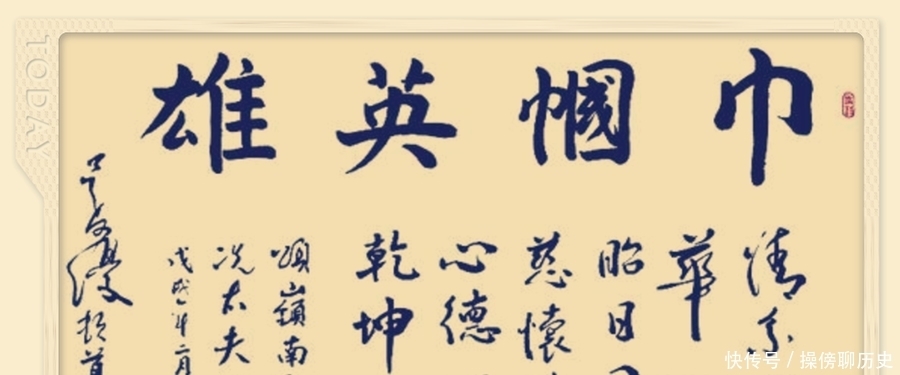 巾幗英雄
情系
華
昭日
慈懷
心德
乾坤
頌嶺南
冼太夫
戊戌年二月
TODAY
快传号 / 操傍聊历史